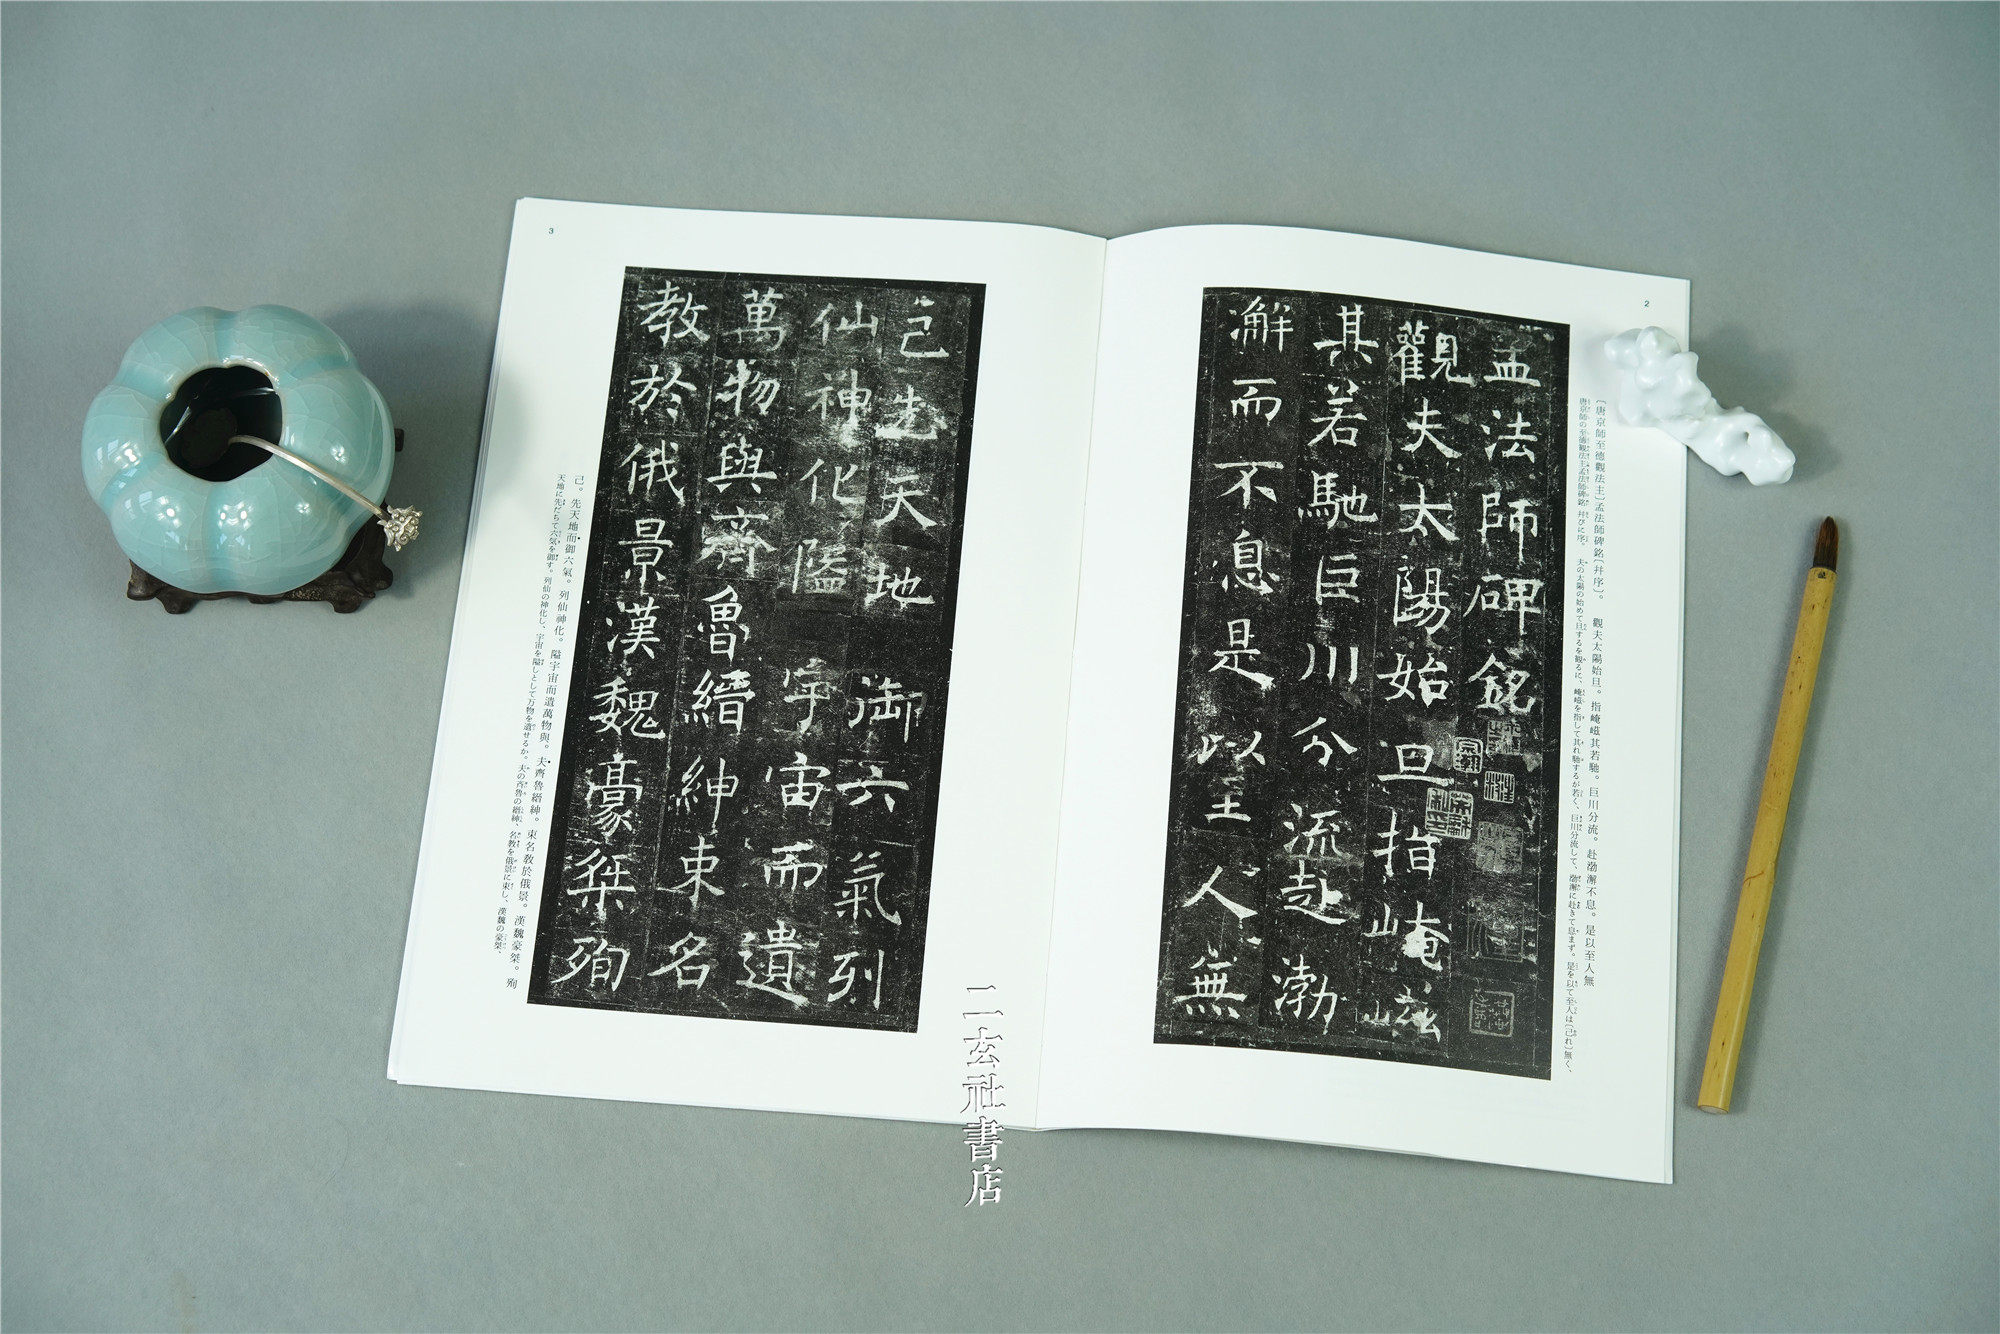 2
孟法師碑銘
觀夫太陽始旦指崦嵫
其若馳巨川分流赴渤
澥而不息是以至人無
〔唐京師至德觀法主〕孟法師碑銘〔幷序〕。 觀夫太陽始旦。指崦嵫其若馳。巨川分流。赴渤澥不息。是以至人無
唐京師の至德觀法主孟法師碑銘 幷びに序。 夫の太陽の始めて旦するを観るに、崦嵫を指して其れ馳するが若く、巨川分流して、渤澥に赴きて息まず。是を以て至人は〔己れ〕無く、
3
己先天地御六氣列
仙神化隘宇宙而遺
萬物與齊魯縉紳束名
教於俄景漢魏豪桀殉
己。先天地而御六氣。列仙神化。隘宇宙而遺萬物與。夫齊魯縉紳。束名教於俄景。漢魏豪桀。殉
天地に先だちて六気を御す。列仙の神化し、宇宙を隘しとして万物を遺せるか。夫の斉魯の縉紳、名教を俄景に束し、漢魏の豪桀、
二玄社書店